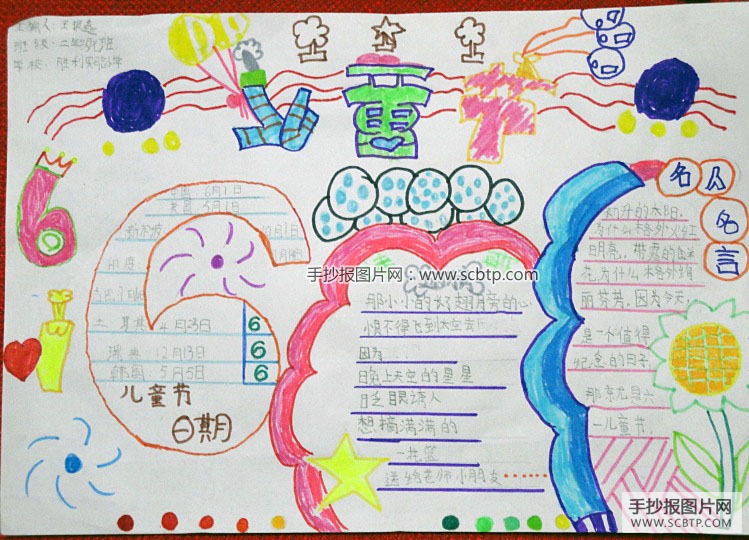 班级：二年级
学校：胜利实验小学
六 童 节
6
中国 6月1日
美国 5月1日
新加坡 10月1日
印度
土耳其 4月23日 6
瑞典 12月13日 6
韩国 5月5日 6
儿童节
日期
手抄报图片网：www.scbtp.com
恨不得飞到太空去
因为
晚上天空的星星
眨眼诱人
想摘满满的
一花篮
送给老师小朋友
名人名言
初升的太阳,
为什么格外火红
明亮，带露的鲜
花,为什么格外绚
丽芬芳,因为今天,
是一个值得
纪念的日子
那就是六
一儿童节.
手抄报图片网
WWW.SCBTP.COM